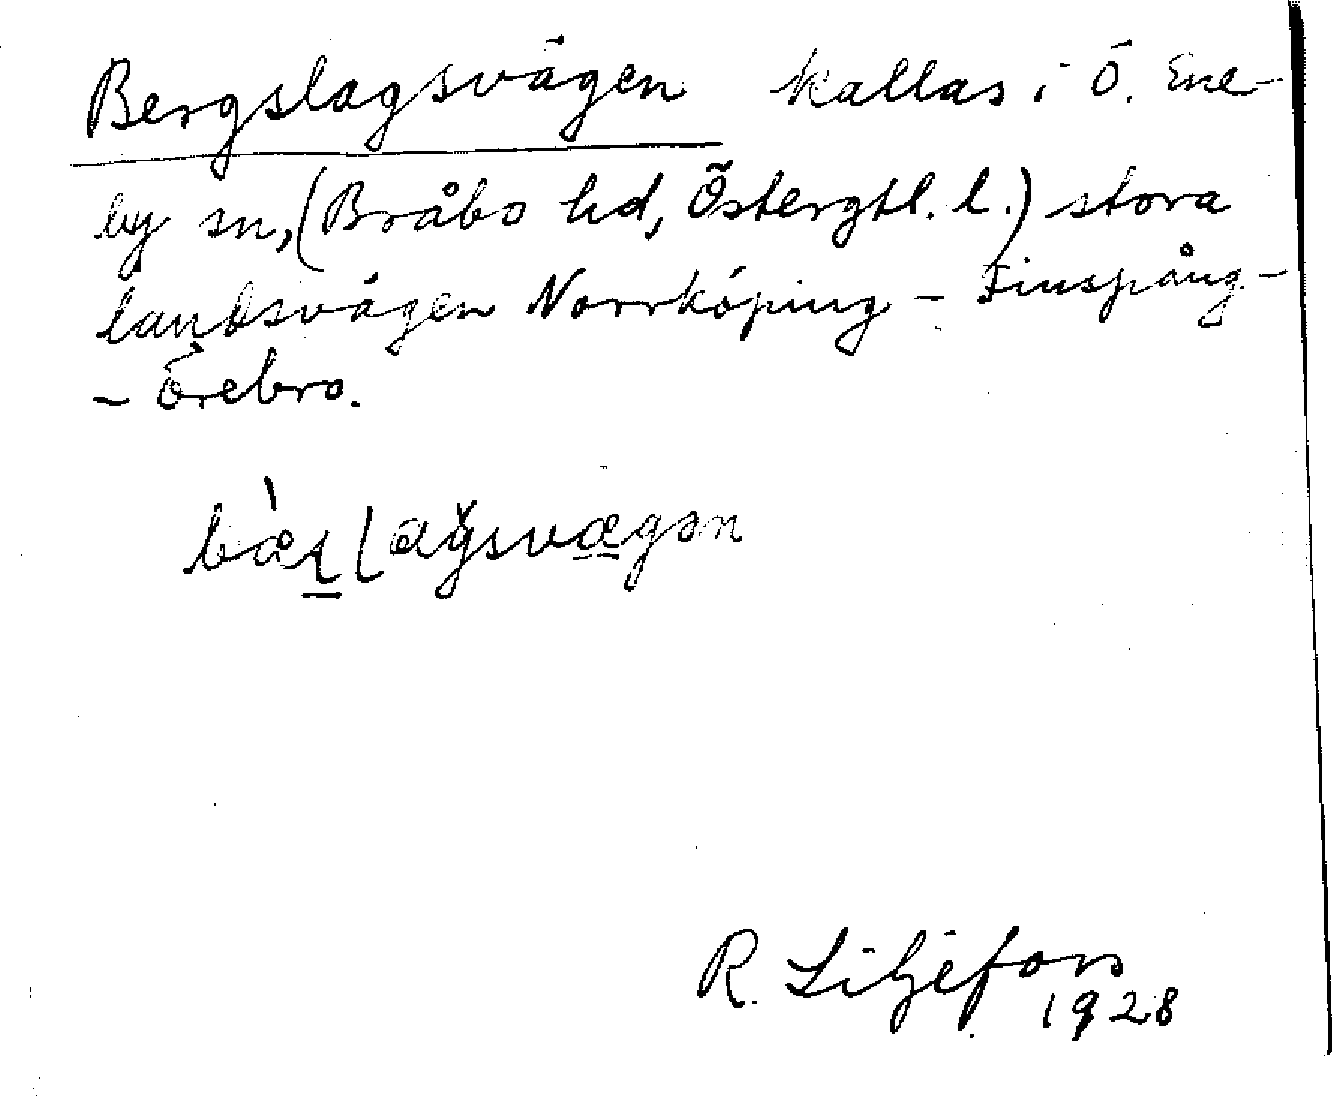 Bergslagsvägen kallas i Ö. Ene-
by sn, (Bråbo hd, Östergtl. l.) stora
landsvägen Norrköping - Finspång-
- Örebro.
R. Liljefors
1928